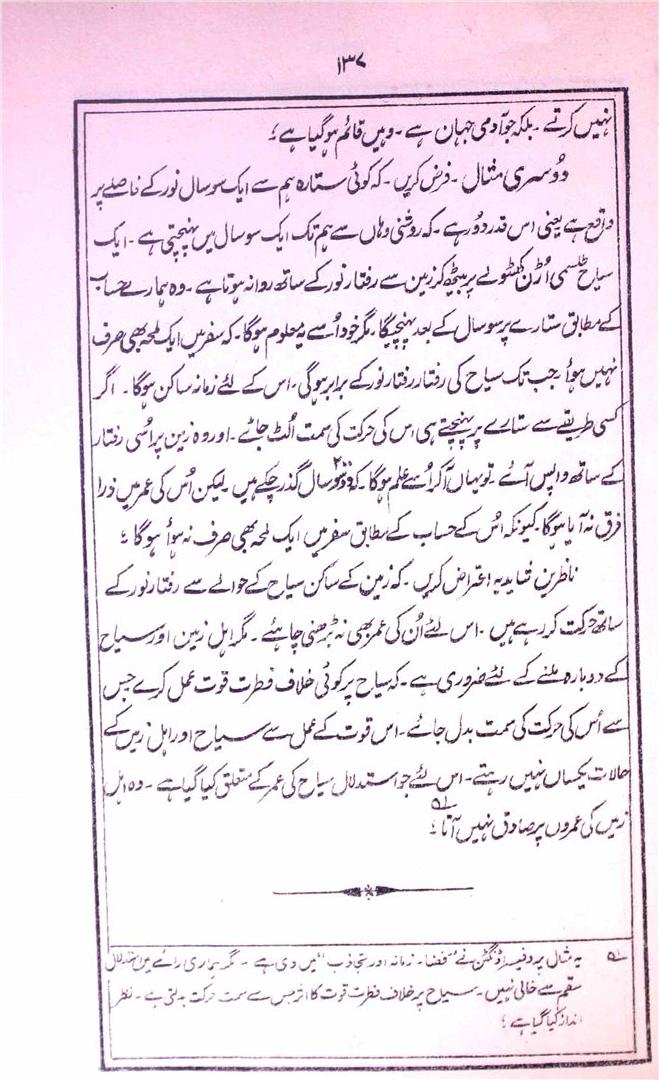 ۱۳۷
نہیں کرتے ۔ بلکہ جو آدمی جہان ہے ۔ وہیں قائم ہو گیا ہے ؛
دُوسری مثال ۔ فرض کریں ۔ کہ کوئی ستارہ ہم سے ایک سو سال نور کے فاصلے پر
واقع ہے یعنی اس قدر دُور ہے ۔ کہ روشنی وہاں سے ہم تک ایک سو سال میں پہنچتی ہے ۔ ایک
سیاح طلسمی اُڑن کھٹولے پر بیٹھ کر زمین سے رفتار نور کے ساتھ روانہ ہوتا ہے ۔ وہ ہمارے حساب
کے مطابق ستارے پر سو سال کے بعد پہنچیگا ۔ مگر خود اُسے یہ معلوم ہوگا ۔ کہ سفر میں ایک لمحہ بھی صرف
نہیں ہوُا ۔ جب تک سیاح کی رفتار رفتار نور کے برابر ہوگی ۔ اس کے لئے زمانہ ساکن ہوگا ۔ اگر
کسی طریقے سے ستارے پر پہنچتے ہی اس کی حرکت کی سمت اُلٹ جائے ۔ اور وہ زمین پر اُسی رفتار
کے ساتھ واپس آئے ۔ تو یہاں آکر اُسے علم ہوگا ۔ کہ سال گذر چکے ہیں ۔ لیکن اُس کی عمر میں ذرا
فرق نہ آیا ہوگا ۔ کیونکہ اُس کے حساب کے مطابق سفر میں ایک لمحہ بھی صرف نہ ہوُا ہوگا ؛
ناظرین شاید یہ اعتراض کریں ۔ کہ زمین کے ساکن سیاح کے حوالے سے رفتار نور کے
ساتھ حرکت کر رہے ہیں ۔ اس لئے اُن کی عمر بھی نہ بڑھنی چاہئے ۔ مگر اہل زمین اور سیاح
کے دوبارہ ملنے کے لئے ضروری ہے ۔ کہ سیاح پر کوئی خلاف فطرت قوت عمل کرے جس
سے اُس کی حرکت کی سمت بدل جائے ۔ اس قوت کے عمل سے سیاح اور اہل زمین کے
حالات یکساں نہیں رہتے ۔ اس لئے جو استدلال سیاح کی عمر کے متعلق کیا گیا ہے ۔ وہ اہل
زمیں کی عمروں پر صادق نہیں آتا ؛
یہ مثال پروفیسر اڈنگٹن نے "فضا ۔ زمانہ اور تجاذب" میں دی ہے ۔ مگر ہماری رائے میں استدلال
سقم سے خالی نہیں ۔ سیاح پر خلاف فطرت قوت کا اثر جس سے سمت حرکت بدلتی ہے ۔ نظر
انداز کیا گیا ہے ؛